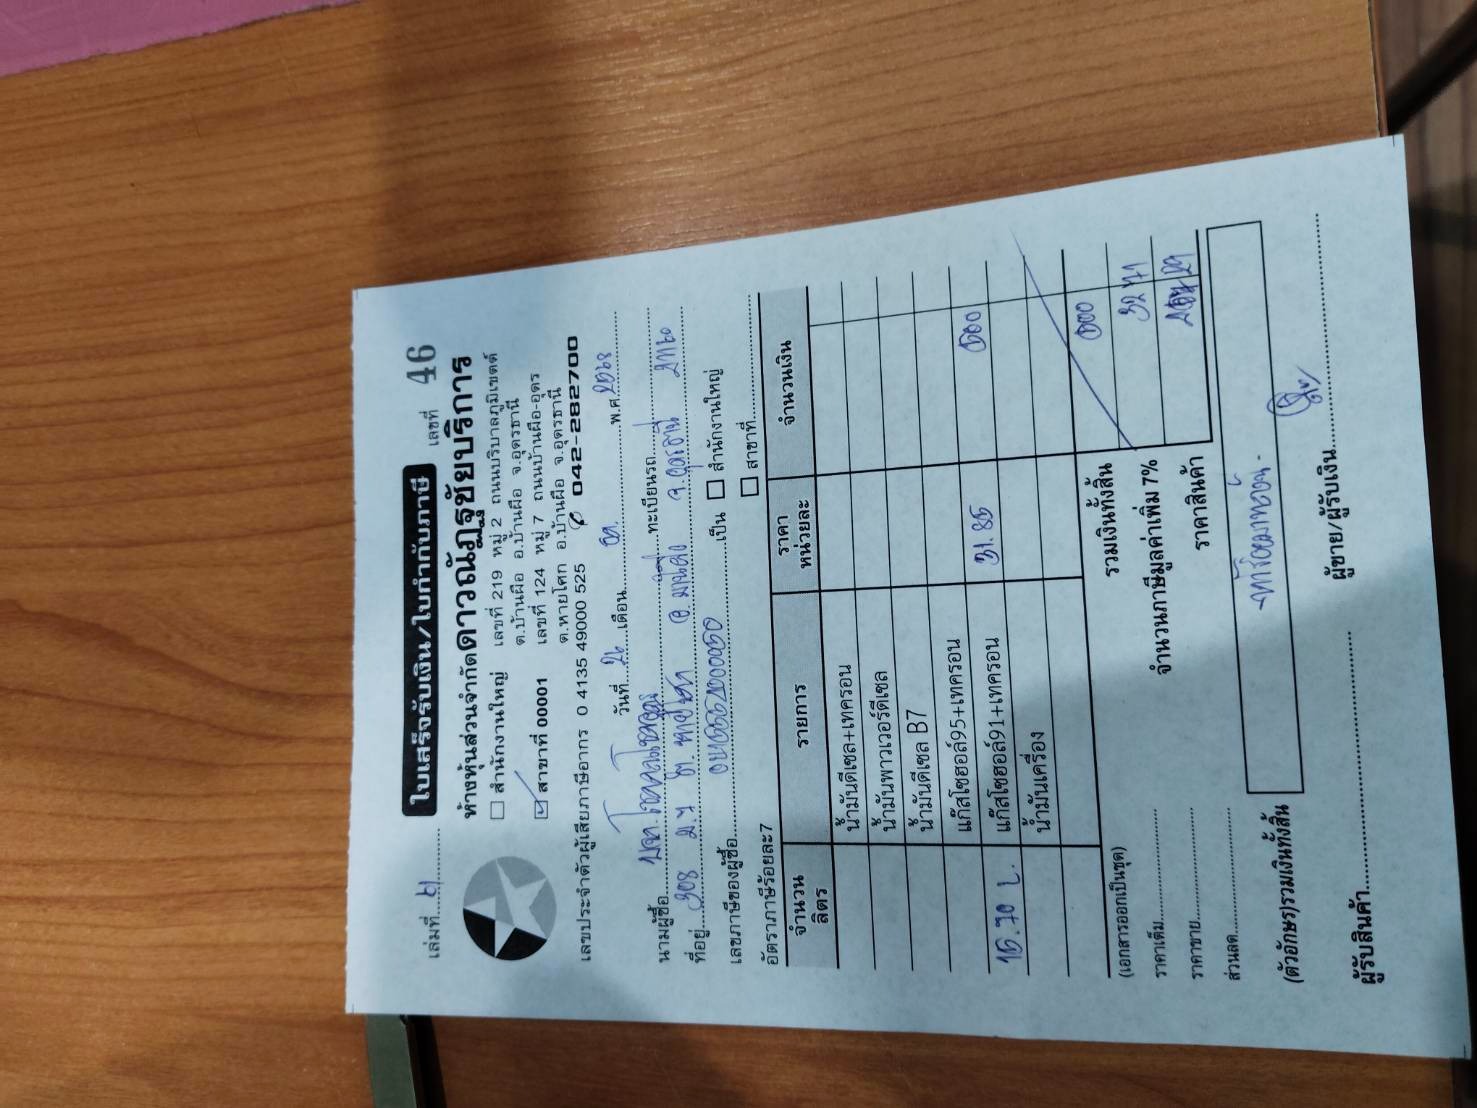 เล่มที่ เลขที่ 46
ใบเสร็จรับเงิน/ใบกำกับภาษี
ห้างหุ้นส่วนจำกัดดาวณัฏฐชัยบริการ
☐ สำนักงานใหญ่ เลขที่ 219 หมู่ 2 ถนนบริบาลภูมิเขตต์
ต.บ้านผือ อ.บ้านผือ จ.อุดรธานี
☑ สาขาที่ 00001 เลขที่ 124 หมู่ 7 ถนนบ้านผือ-อุดร
ต.หายโศก อ.บ้านผือ จ.อุดรธานี
เลขประจำตัวผู้เสียภาษีอากร 0 4135 49000 525 042-282700
วันที่ 26 เดือน พ.ศ. 2568
นามผู้ซื้อ ทะเบียนรถ
ที่อยู่ 308 ม.7 จ.อุดรธานี 41160
เลขภาษีของผู้ซื้อ เป็น ☐ สำนักงานใหญ่
อัตราภาษีร้อยละ7 ☐ สาขาที่
จำนวน ลิตร รายการ ราคา หน่วยละ จำนวนเงิน
น้ำมันดีเซล+เทครอน
น้ำมันพาวเวอร์ดีเซล
น้ำมันดีเซล B7
แก๊สโซฮอล์95+เทครอน
15.70 L. แก๊สโซฮอล์91+เทครอน 31.85 500
น้ำมันเครื่อง
(เอกสารออกเป็นชุด) รวมเงินทั้งสิ้น 500
ราคาเต็ม จำนวนภาษีมูลค่าเพิ่ม 7% 32 71
ราคาขาย ราคาสินค้า 29
ส่วนลด
(ตัวอักษร)รวมเงินทั้งสิ้น -ห้าร้อยบาทถ้วน-
ผู้รับสินค้า ผู้ขาย/ผู้รับเงิน